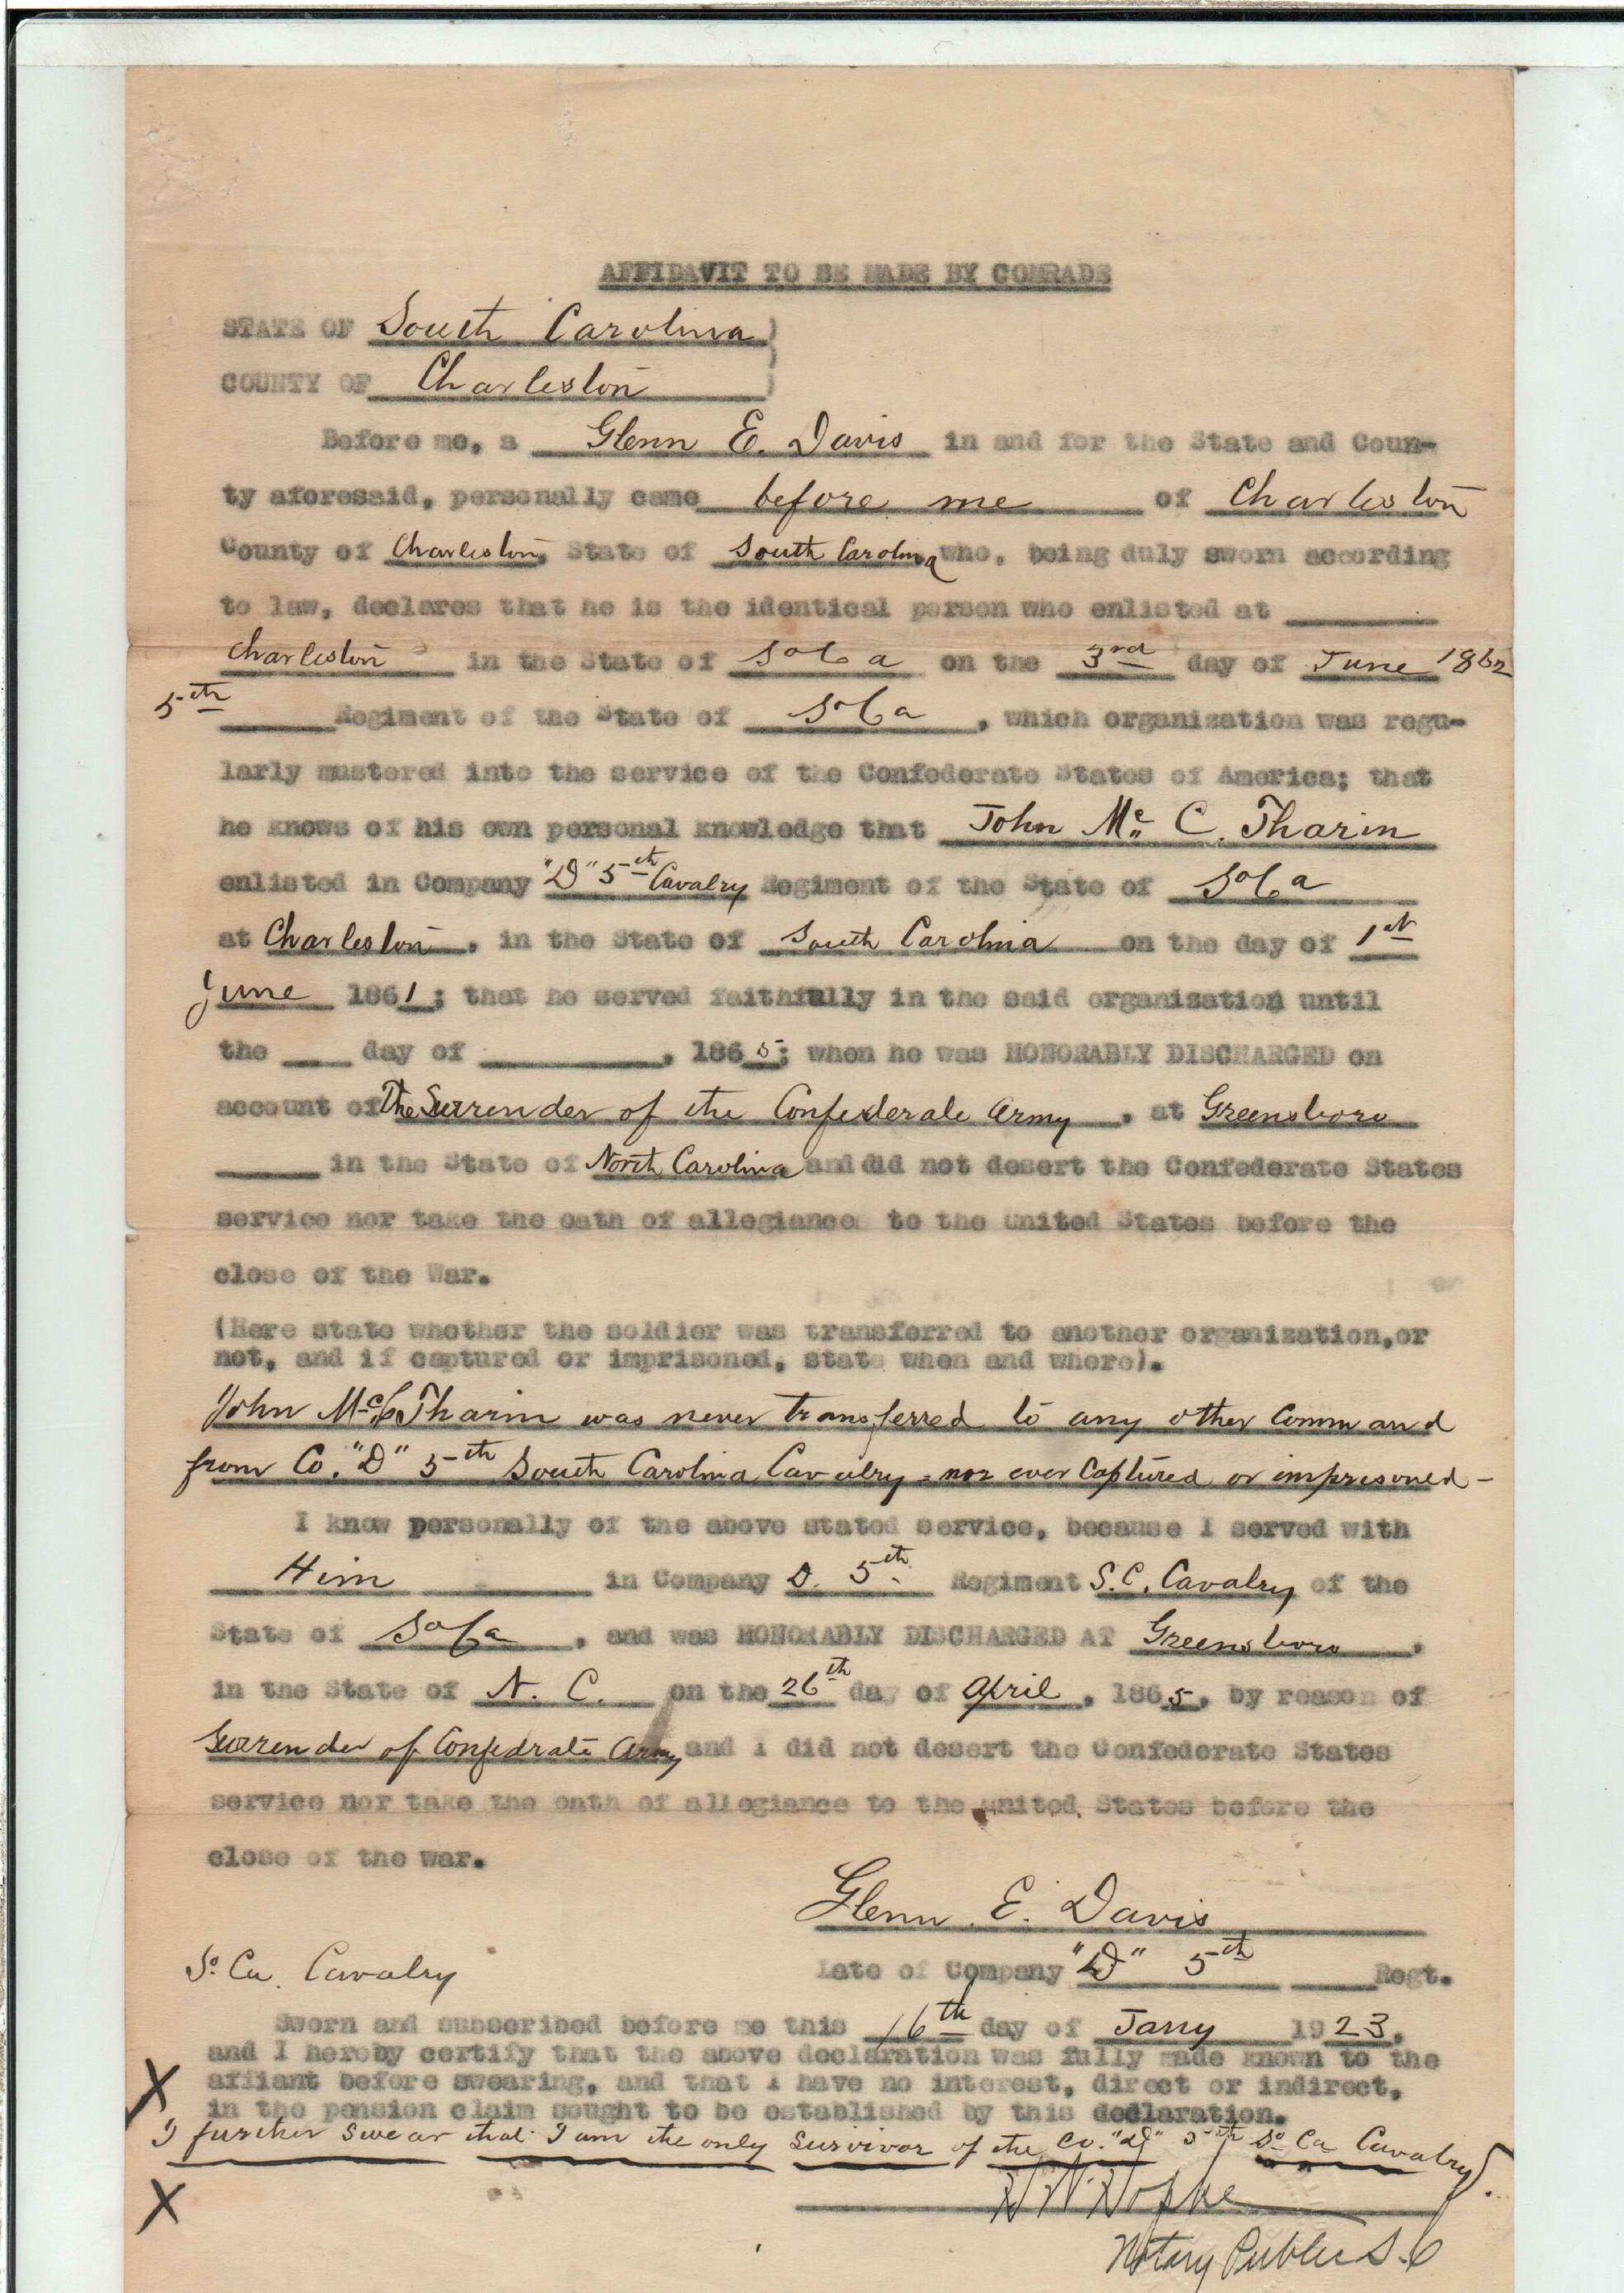 AFFIDAVIT TO BE MADE BY COMRADE
STATE OF South Carolina )
COUNTY OF Charleston )
Before me, a Glenn E. Davis in and for the State and Coun-
ty aforesaid, personally came before me of Charleston
County of Charleston, State of South Carolina who, being duly sworn according
to law, declares that he is the identical person who enlisted at
Charleston in the State of So Ca on the 3rd day of June 1862
5th Regiment of the State of So Ca, which organization was regu-
larly mustered into the service of the Confederate States of America; that
he knows of his own personal knowledge that John Mc C. Tharin
enlisted in Company "D" 5th Cavalry Regiment of the State of So Ca
at Charleston, in the State of South Carolina on the day of 1st
June 1861; that he served faithfully in the said organization until
the ___ day of ______, 1865; when he was HONORABLY DISCHARGED on
account of The Surrender of the Confederate Army, at Greensboro
in the State of North Carolina and did not desert the Confederate States
service nor take the oath of allegiance to the United States before the
close of the War.
(Here state whether the soldier was transferred to another organization,or
not, and if captured or imprisoned, state when and where).
John McC Tharin was never transferred to any other Command
from Co. "D" 5th South Carolina Cavalry - nor ever Captured or imprisoned -
I know personally of the above stated service, because I served with
Him in Company D. 5th Regiment S.C. Cavalry of the
State of So Ca, and was HONORABLY DISCHARGED AT Greensboro,
in the State of N. C. on the 26th day of April, 1865, by reason of
Surrender of Confedrate Army and I did not desert the Confederate States
service nor take the oath of allegiance to the United States before the
close of the war.
Glenn E. Davis
So. Ca. Cavalry Late of Company "D" 5th Regt.
Sworn and subscribed before me this 16th day of Jany 1923.
and I hereby certify that the above declaration was fully made known to the
X affiant before swearing, and that I have no interest, direct or indirect,
in the pension claim sought to be established by this declaration.
I further swear that I am the only Survivor of the Co. "D" 5th So Ca Cavalry.
X
Notary Public S.C